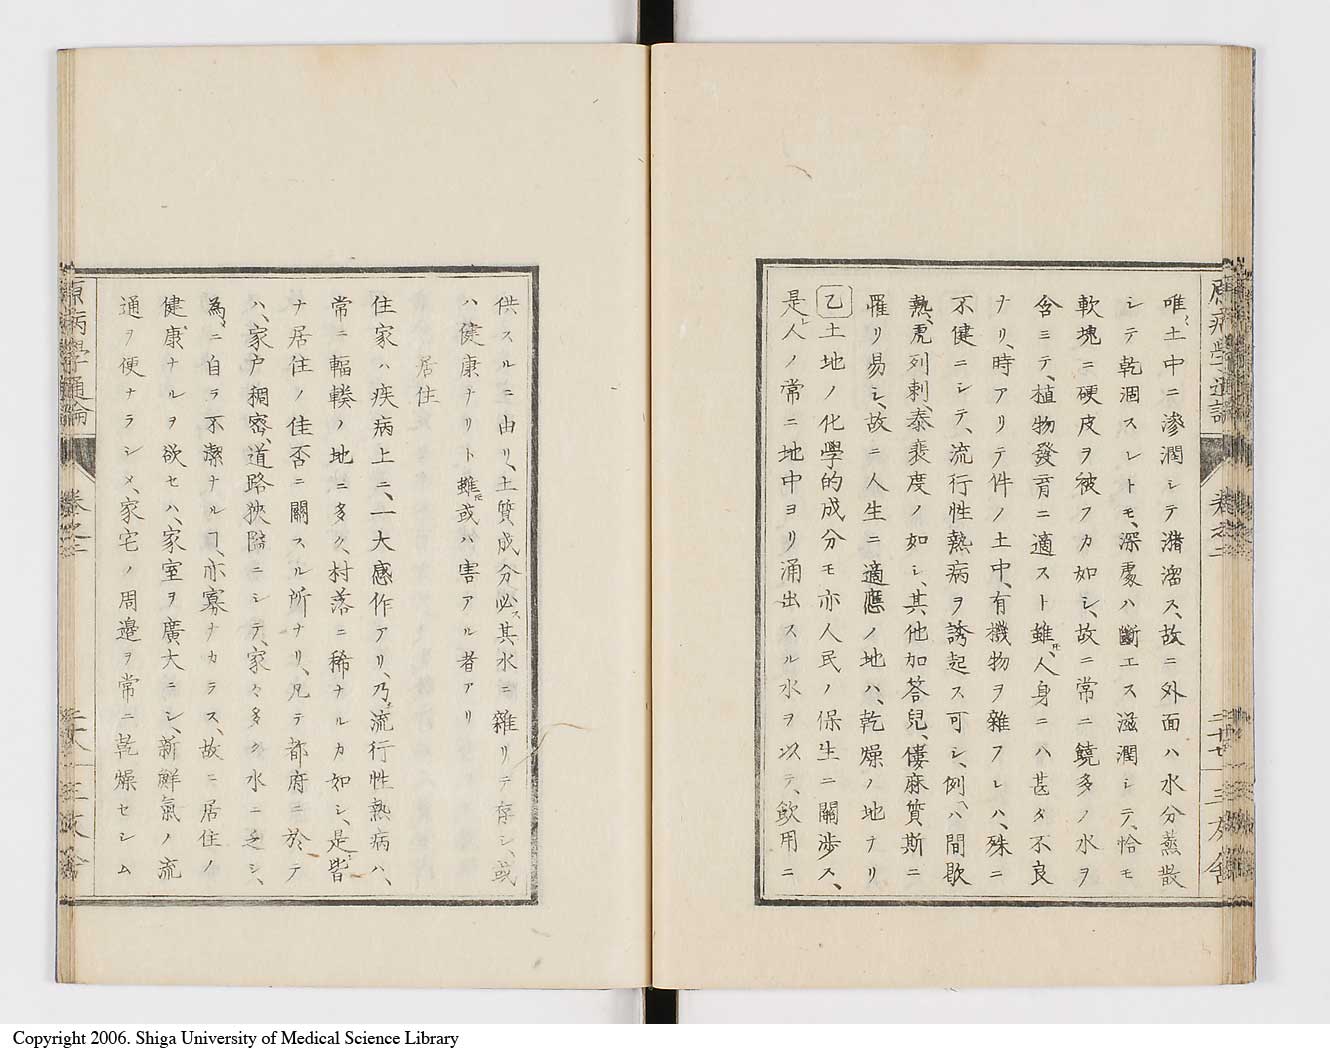 唯土中ニ滲潤シテ瀦溜ス、故ニ外面ハ水分蒸散
シテ乾涸スレトモ、深處ハ斷エス滋潤シテ、恰モ
軟塊ニ硬皮ヲ被フカ如シ、故ニ常ニ饒多ノ水ヲ
含ミテ、植物發育ニ適スト雖モ、人身ニハ甚タ不良
ナリ、時アリテ件ノ土中、有機物ヲ雜フレハ、殊ニ
不健ニシテ、流行性熱病ヲ誘起ス可シ、例ヘハ間歇
熱、虎列剌、泰裴度ノ如シ、其他加答兒、僂麻質斯ニ
罹リ易シ、故ニ人生ニ適應ノ地ハ、乾燥ノ地ナリ
乙土地ノ化學的成分モ亦人民ノ保生ニ關渉ス、
是レ人ノ常ニ地中ヨリ涌出スル水ヲ以テ、飲用ニ
供スルニ由リ、土質成分必ス其水ニ雜リテ存シ、或
ハ健康ナリト雖モ或ハ害アル者アリ
居住
住家ハ疾病上ニ、一大感作アリ、乃チ流行性熱病ハ、
常ニ輻輳ノ地ニ多ク、村落ニ稀ナルカ如シ、是レ皆
ナ居住ノ佳否ニ關スル所ナリ、凡テ都府ニ於テ
ハ、家戸稠密、道路狹隘ニシテ、家々多ク水ニ乏シ、
為ニ自ラ不潔ナルヿ、亦寡ナカラス、故ニ居住ノ
健康ナルヲ欲セハ、家室ヲ廣大ニシ、新鮮氣ノ流
通ヲ便ナラシメ、家宅ノ周邉ヲ常ニ乾燥セシム
原病學通論
卷之二
二十七
三友舎
原病學通論
卷之二
Copyright 2006. Shiga University of Medical Science Library